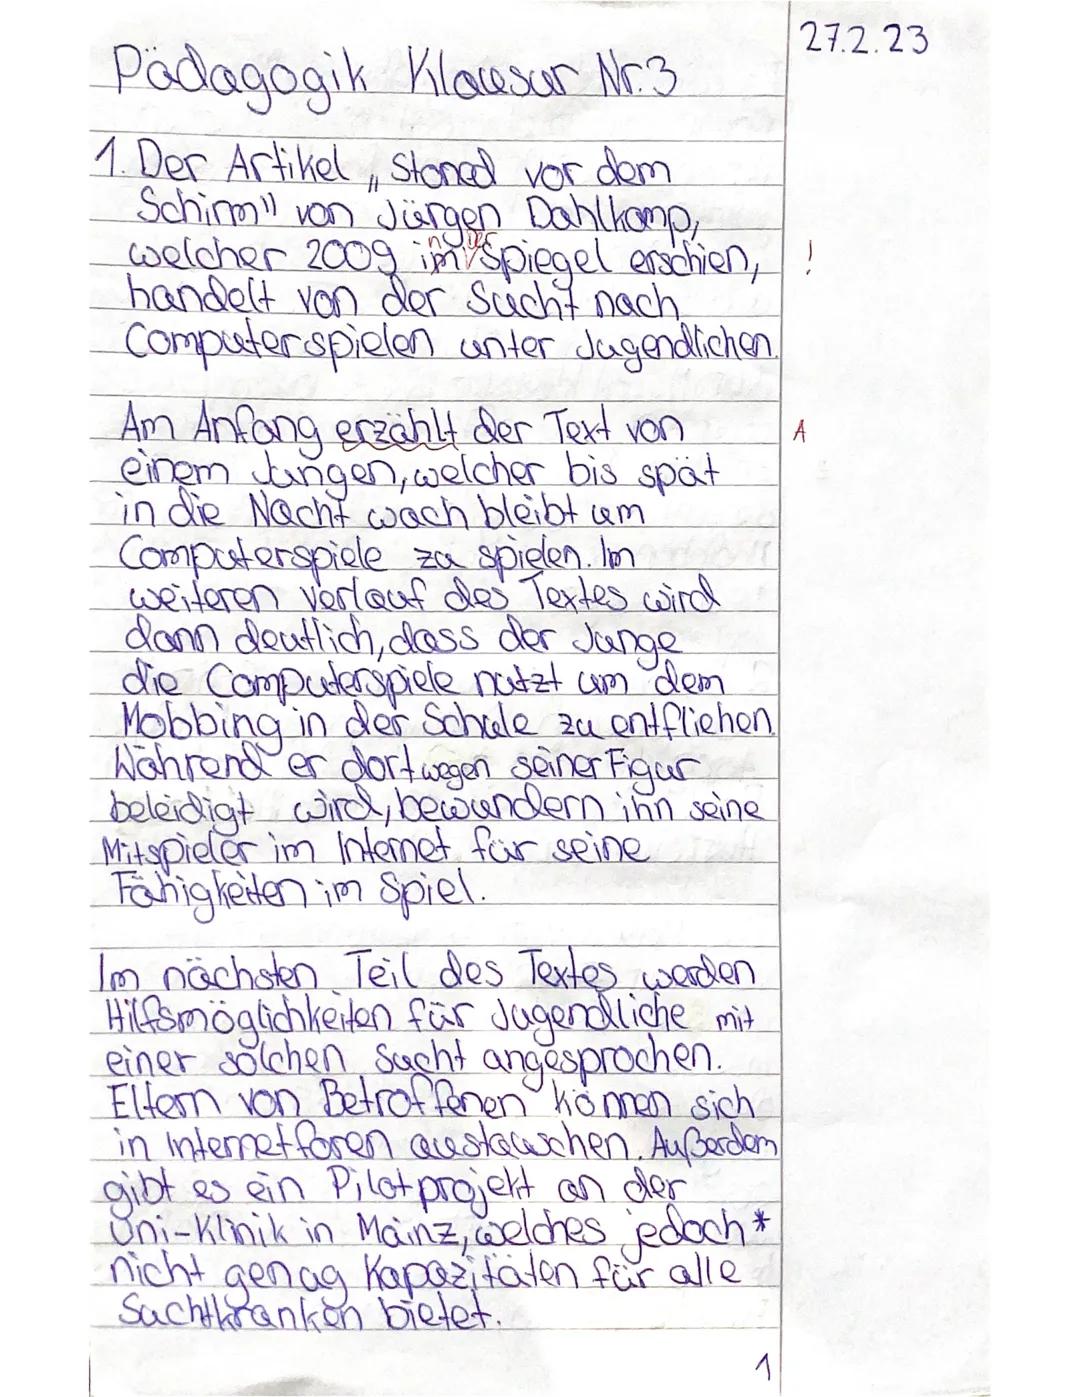 27.2.23
Pädagogik Klausur Nr.3
1. Der Artikel „Stoned vor dem
Schirm" von Jürgen Dahlkamp,
welcher 2009 im Spiegel erschien, !
handelt von der Sucht nach
Computerspielen unter Jugendlichen.
Am Anfang erzählt der Text von A
einem Jungen, welcher bis spät
in die Nacht wach bleibt um
Computerspiele zu spielen. Im
weiteren Verlauf des Textes wird
dann deutlich, dass der Junge
die Computerspiele nutzt um dem
Mobbing in der Schule zu entfliehen.
Während er dort wegen seiner Figur
beleidigt wird, bewundern ihn seine
Mitspieler im Internet für seine
Fähigkeiten im Spiel.
Im nächsten Teil des Textes werden
Hilfsmöglichkeiten für Jugendliche mit
einer solchen Sucht angesprochen.
Eltern von Betroffenen können sich
in Internetforen austauschen. Außerdem
gibt es ein Pilotprojekt an der
Uni-Klinik in Mainz, welches jedoch *
nicht genug Kapazitäten für alle
Suchtkranken bietet.
1